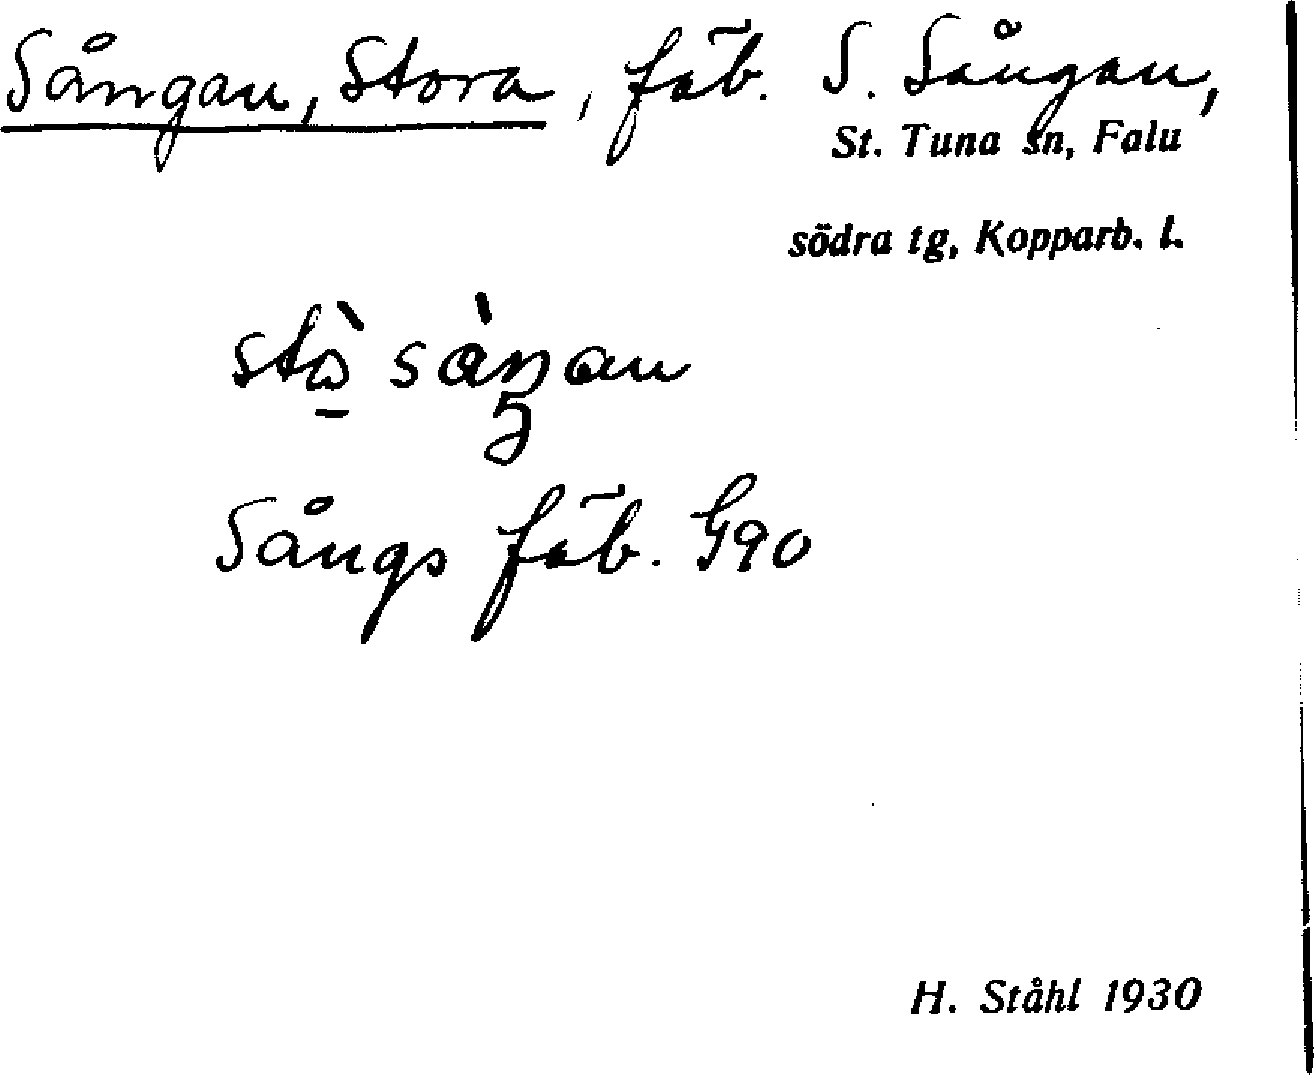 Sångan, Stora, fäb. S. Sångan,
St. Tuna sn, Falu
södra tg, Kopparb. l.
Sångs fäb. G90
H. Ståhl 1930